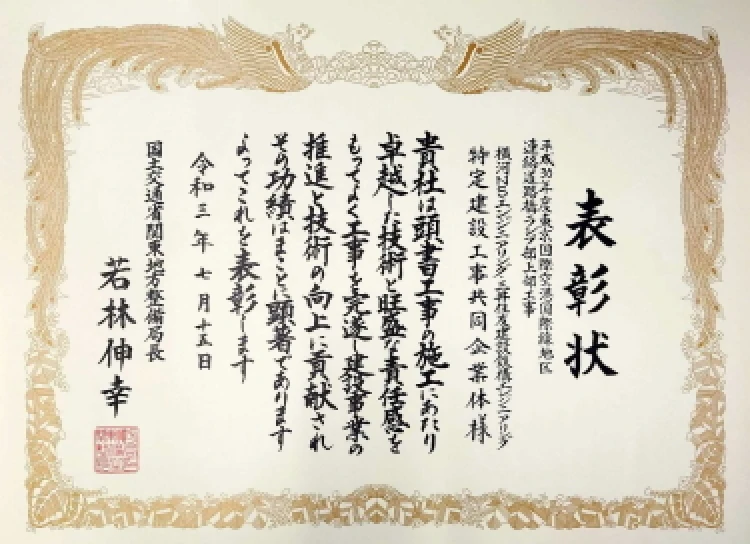 表彰状
平成30年度東京国際空港国際線地区
連絡道路橋ランプ部上部工事
横河NSエンジニアリング・三井住友建設鉄構エンジニアリング
特定建設工事共同企業体様
貴社は頭書工事の施工にあたり
卓越した技術と旺盛な責任感を
もってよく工事を完遂し建設事業の
推進と技術の向上に貢献され
その功績はまことに顕著であります
よってこれを表彰します
令和三年七月十五日
国土交通省関東地方整備局長
若林伸幸